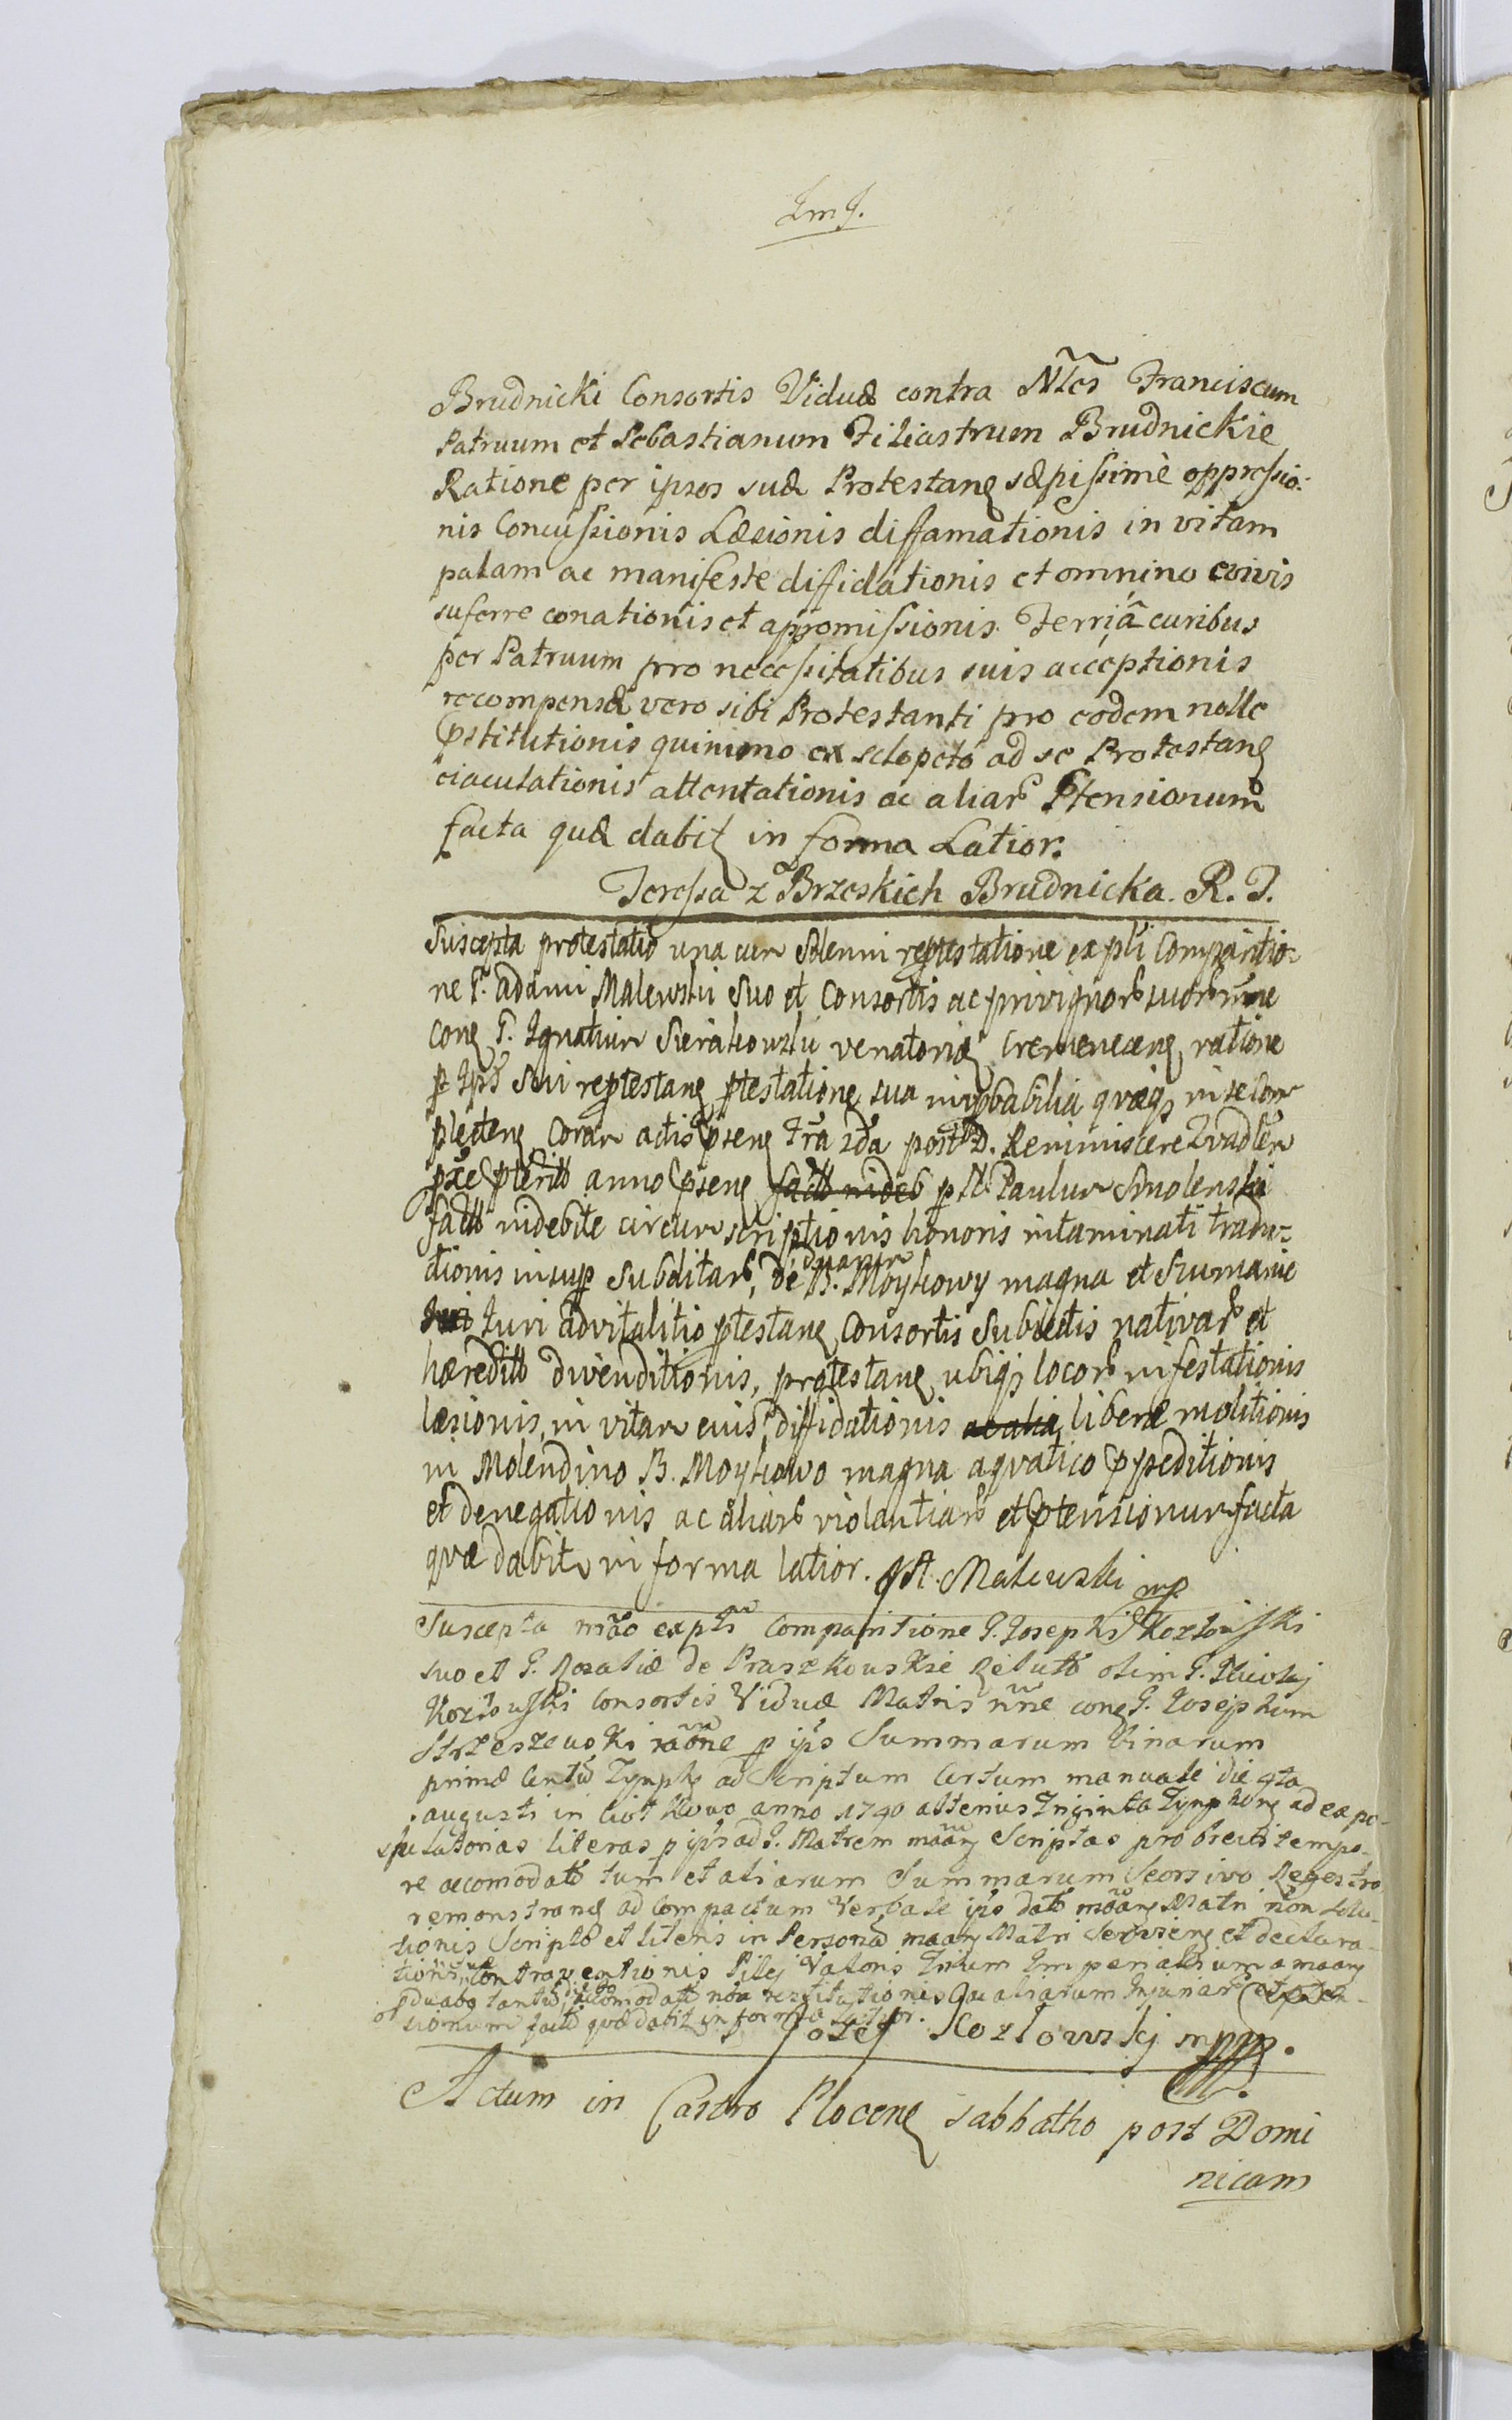 ImJ.
Brudnicki Consortis Viduæ contra Nłes Franciscum
Patruum et Sebastianum Filiastrum Brudnickie
Ratione per ipsos suæ Protestanę sæpissimè oppressio:
nis Concussionis Læsionis diffamationis in vitam
palam ac manifeste diffidationis et omnino eoivis
suferre conationis et appromissionis Terriâ curibus
per Patruum pro necessitatibus suis acceptionis
recompensæ vero sibi Protestanti pro eodem nulle
Pstitutionis quinimo ex sclopeto ad se Protestanę
eiaculationis attentationis ac aliar Ptensionum
facta quæ dabit in forma Latior:
Teressa z Brzeskich Brudnicka. R. T.
Suscepta protestatio una cum Solenni reptestatione expli Comparitio:
ne G. adami Malewski Suo et Consortis ac privignor suor nne
conę G. Ignatium Sierakowski venatoriæ Cremenecenę ratione
p Ips Sui reptestanę ptestatione sua improbabilia quæqз in se Com
plectenę Coram actis psenę fra 2da post D. Reminiscere Quadler
pxe pterito anno psenę facto videb p N. Paulum Smolenski
facto indebite circumscriptionis honoris intaminati tradu:
ctionis insup Subditar, duarum de B. Moykowy magna et Szumanie
Juri advitalitio ptestanę Consortis Subiectis nativar et
hæredit divenditionis, protestanę ubiqз locor infestationis
læsionis, in vitam eius diffidationis ac alia liberæ molitionis
in Molendino B. Moykowo magna aquatico ppeditionis
et denegationis ac aliar violantiar et ptensionum facta
quæ dabit in forma latior. A. Malewski mp
Suscepta mão expłi Comparitione G. Josephi Kozłowski
suo et G. Rozaliæ de Praszkowskie olim G.
Kozłowski Consortis Viduæ Matris nne conę G. Josephum
Strzeszewski raone p ips Summarum binarum
primæ Centũ Tynph ad Scriptum Certum manuale die 4ta
augusti in anno 1740 alterius Triginta Tynphonę ad expo-
stulatorias literas p ips ad G. Matrem maanę Scriptas pro brevi tempo-
re accomodato tum et aliarum Summarum Seorsivo Regestro
remonstranę ad Compactum Verbale ips dato maanę Matri non solu-
tionis Scripto et literis in Personã maanę Matri Servienę et declara-
tionis Contraventionis Pilej Valoris Trium Imperialium a maanę
accomodato non restitutionis aliarum Injuriar et pten-
sionum facta quæ dabit in forma latior.
Jozef Kozłowskj mppp.
Actum in Castro Plocenę sabbatho post Domi
nicam